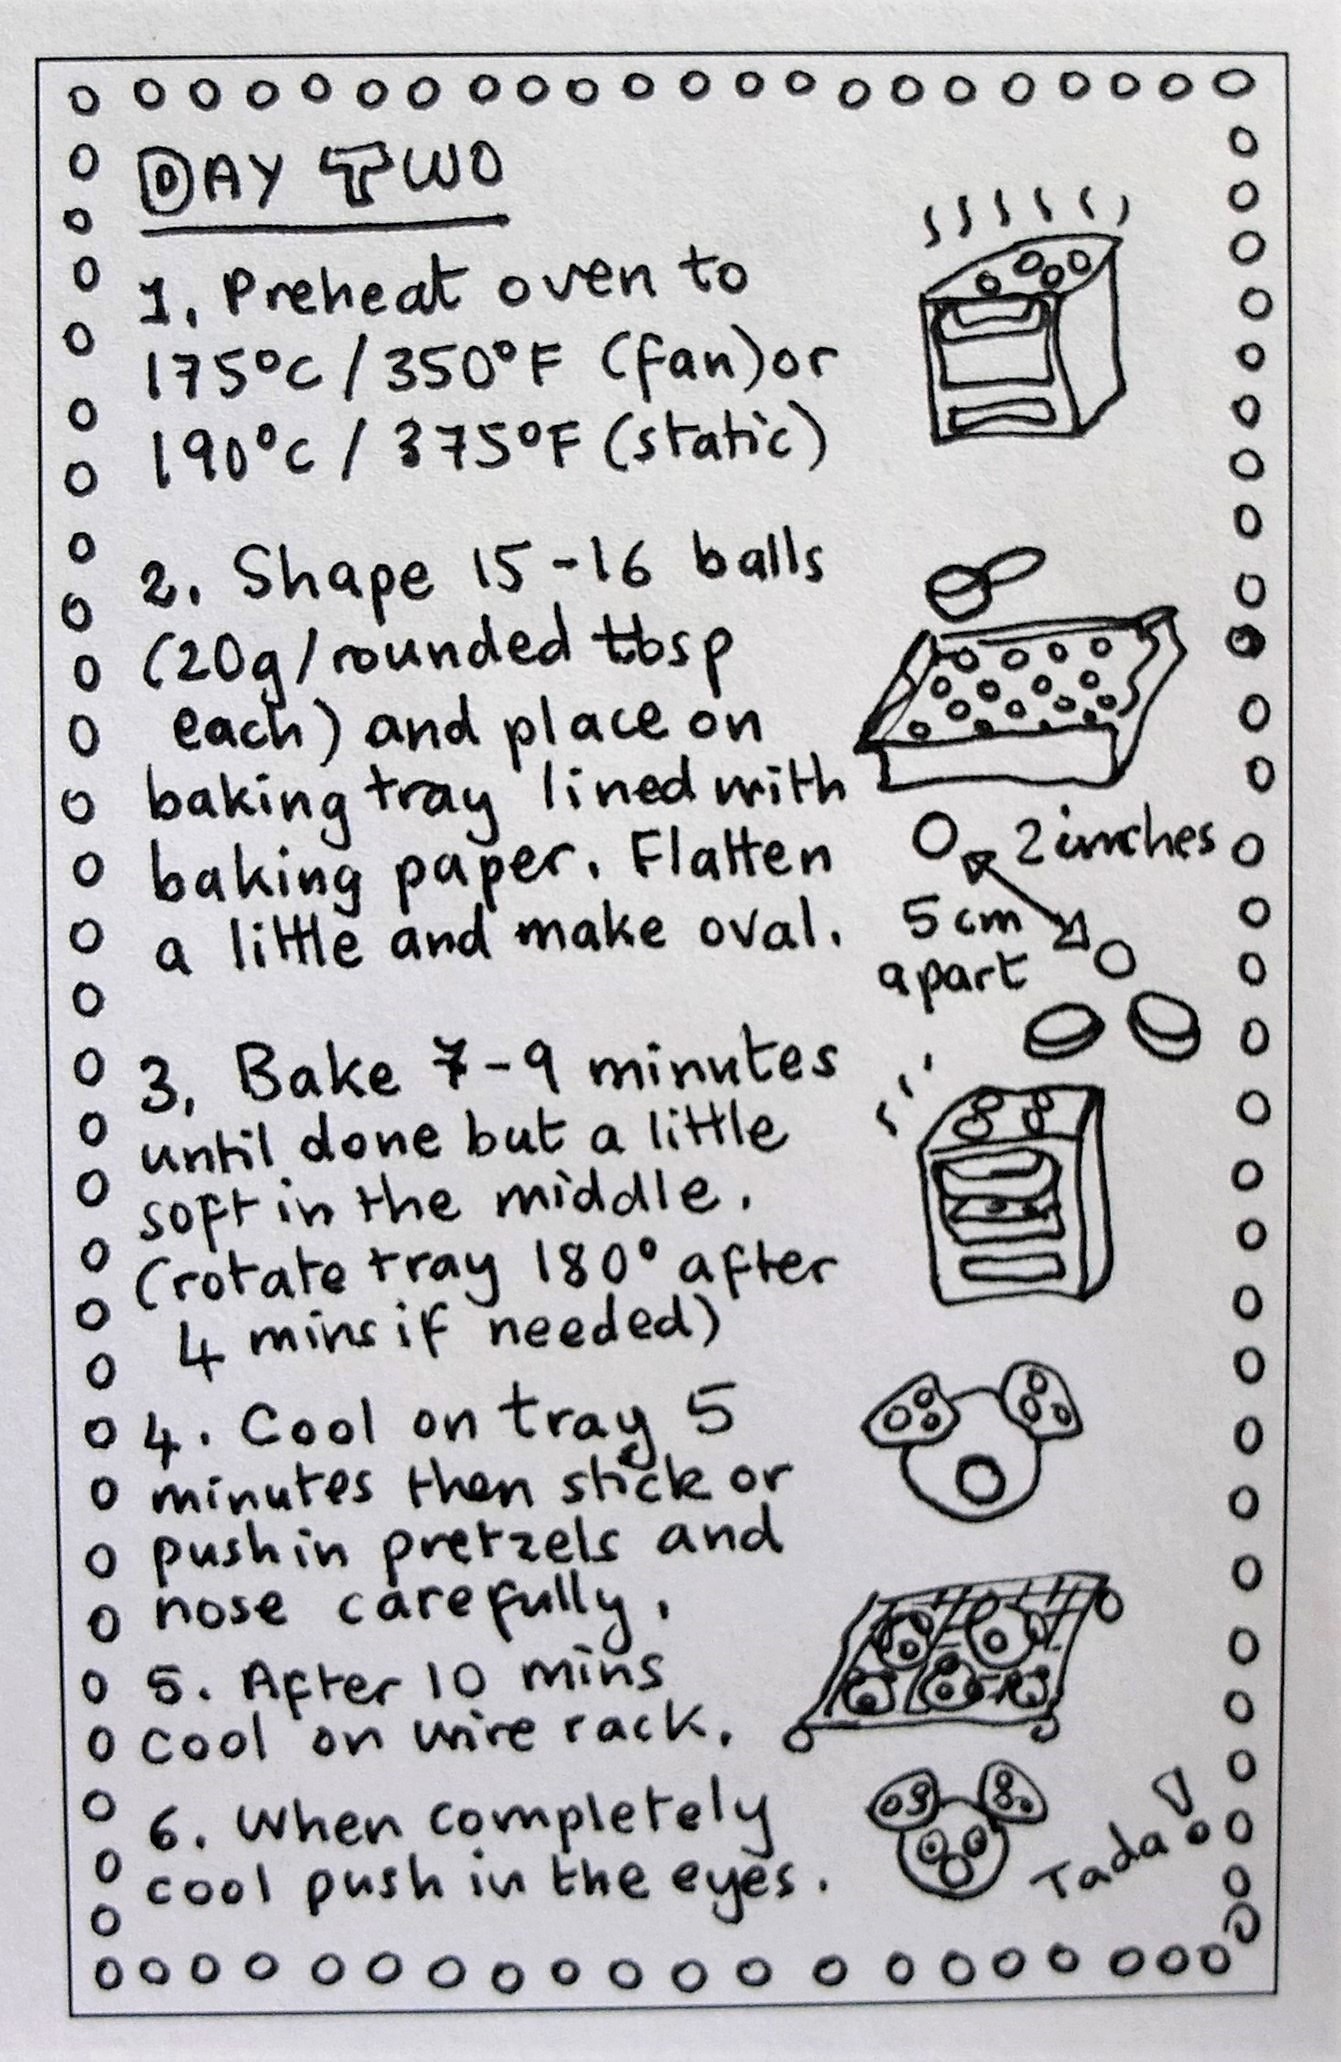 DAY TWO
1. Preheat oven to
175°C / 350°F (fan) or
190°C / 375°F (static)
2. Shape 15-16 balls
(20g/rounded tbsp
each) and place on
baking tray lined with
baking paper. Flatten
a little and make oval.
2 inches
5 cm
apart
3. Bake 7-9 minutes
until done but a little
soft in the middle.
(rotate tray 180° after
4 mins if needed)
4. Cool on tray 5
minutes then stick or
push in pretzels and
nose carefully.
5. After 10 mins
cool on wire rack.
6. When completely
cool push in the eyes.
Tada!